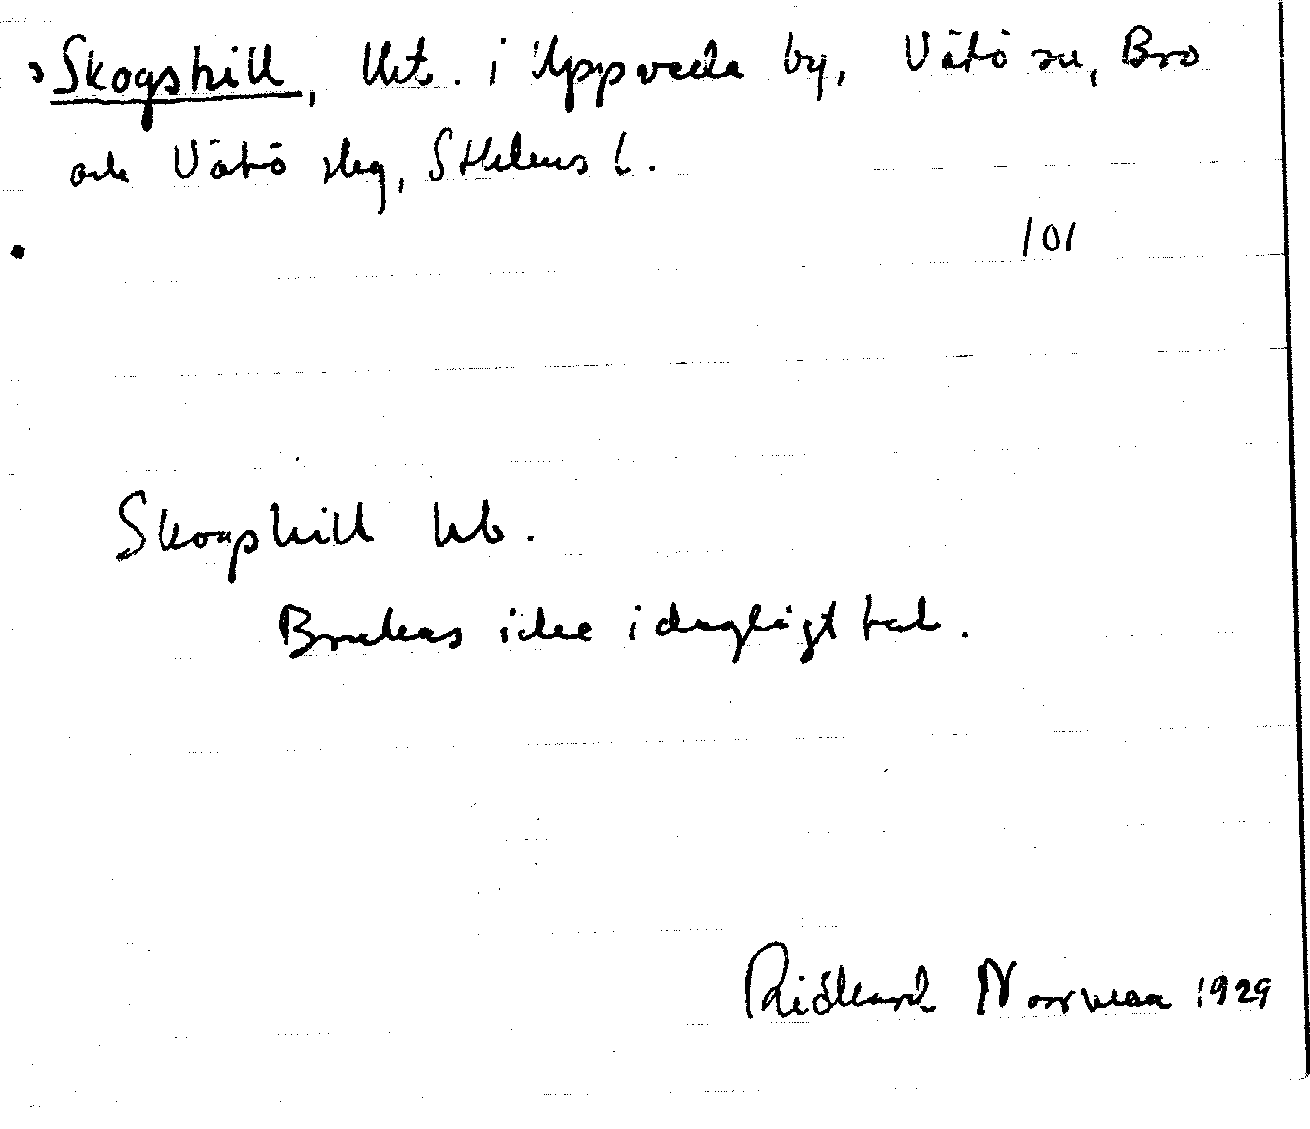 Skogshill, lht. i Uppveda by, Vätö sn, Bro
och Vätö skg, Sthlms l.
101
Skogshill hb.
Brukas icke i dagligt tal.
Rickard Norrman 1929